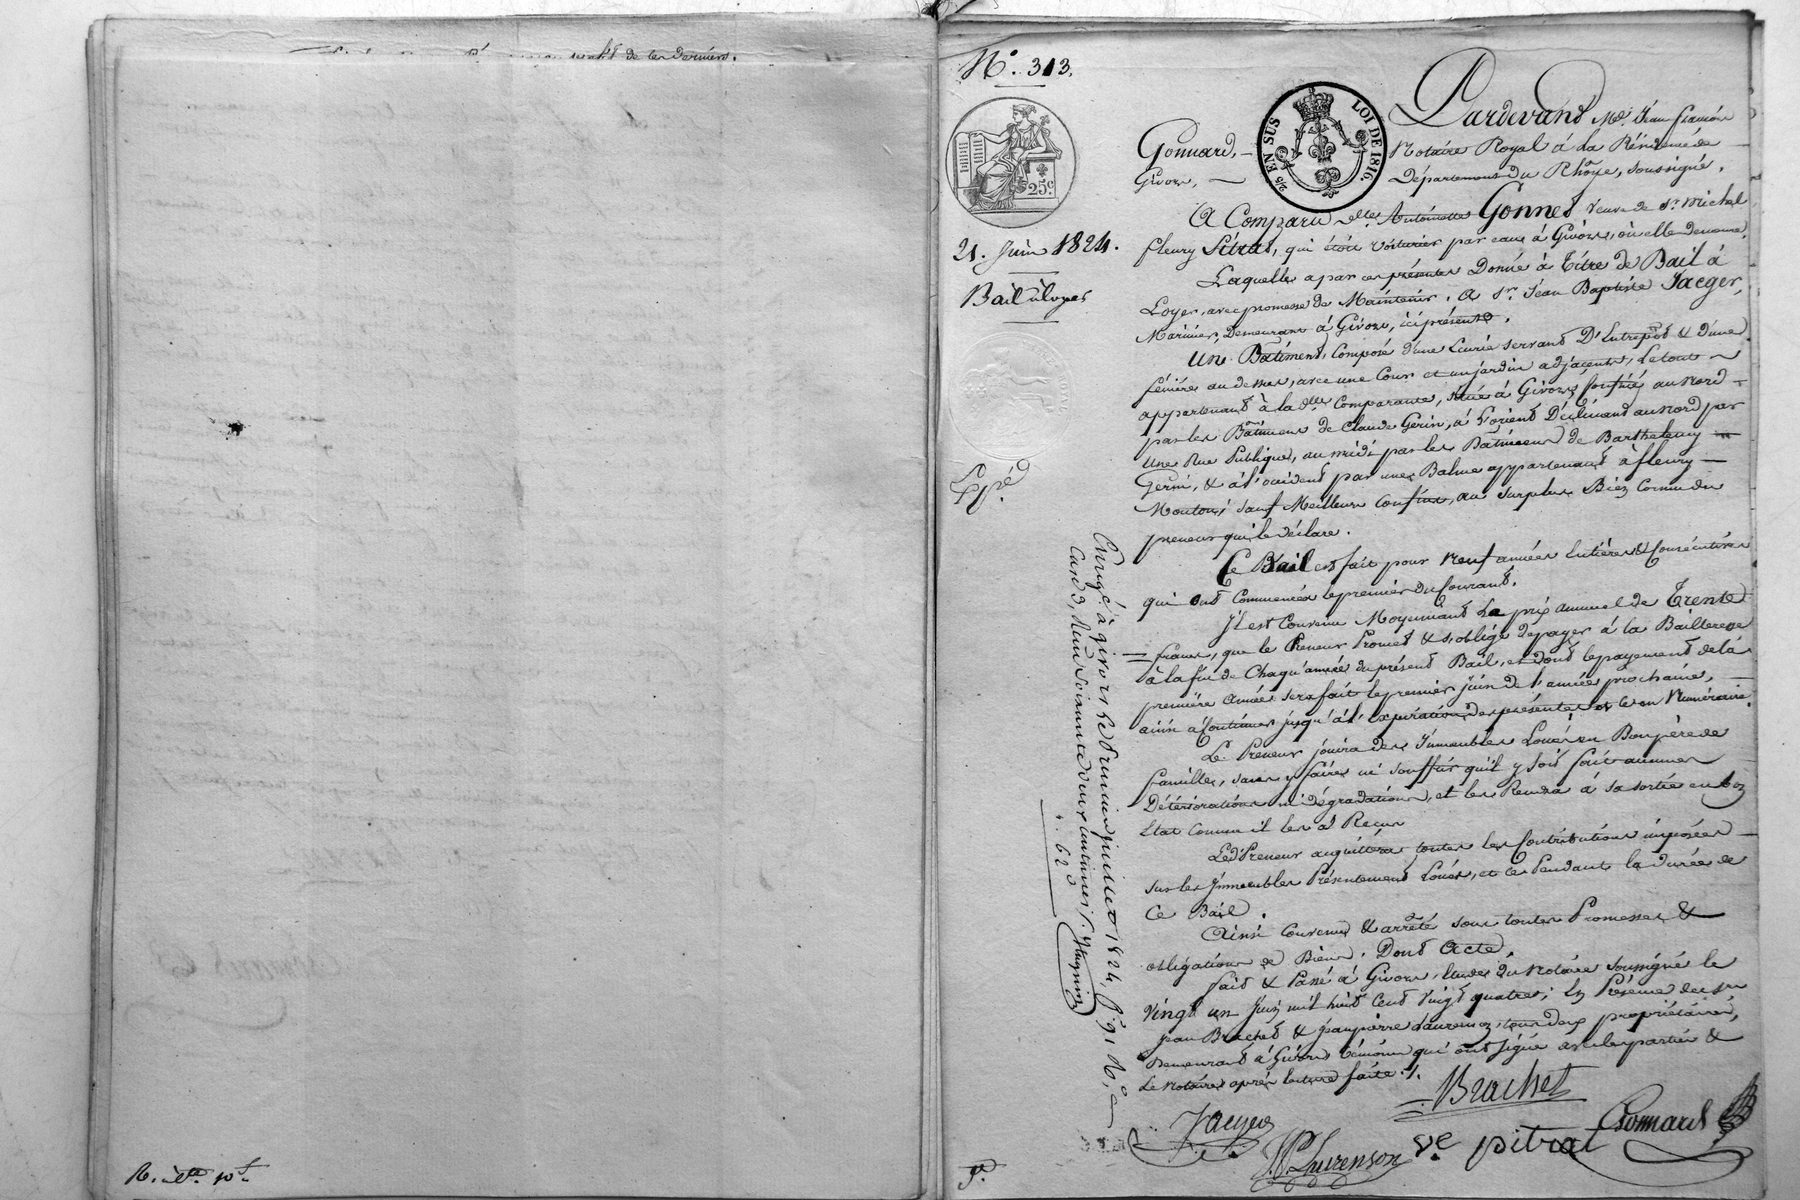 de ces derniers.
R. 10
N.° 313.
25c
21. Juin 1824.
Bail à loyer
Expé.
2/5 EN SUS
LOI DE 1816.
Pardevant Me. Jean françois
Gonnard, Notaire Royal à la Résidence de
Givors, Département du Rhône, soussigné,
A Comparu dlle. Antoinette Gonnet veuve de Sr. Michel
fleury Pitrat, qui étoit voiturier par eau à Givors, où elle demeure,
Laquelle a par ces présentes Donné à Titre de Bail à
Loyer, avec promesse de Maintenir, A Sr. Jean Baptiste Jaeger,
Marinier, Demeurant à Givors, ici présent,
Un Bâtiment, Composé d'une Ecurie servant D'Entrepôt & d'une
fénière au dessus, avec une Cour et un jardin adjacents, Le tout
appartenant à la dlle. Comparante, situé à Givors, Confiné au Nord
par les Bâtimens de Claude Gerin, à l'orient Déclinant au Nord par
une Rue Publique, au midi par les Bâtimens de Barthelemy
Gerin, & à l'occident par une Balme appartenant à fleury
Mouton, sauf Meilleurs Confins, au surplus Bien Connu du
preneur qui le déclare.
Ce Bail est fait pour Neuf années Entières & Consécutives
qui ont Commencées le premier du Courant.
Il est Convenu Moyennant Le prix annuel de Trente
francs, que le Preneur Promet & s'oblige de payer à la Bailleresse
à la fin de Chaqu'année du présent Bail, et dont le payement de la
première année sera fait le premier juin de l'année prochaine,
ainsi à Continuer jusqu'à l'Expiration des présentes & ce en Numéraire.
Le Preneur jouira des Immeubles Loués en Bon père de
famille, sans y faire ni souffrir qu'il y soit fait aucunes
Détériorations ni dégradations, et les Rendra à sa sortie en bon
Etat Comme il les a Reçus
Ledt. Preneur acquittera toutes les Contributions imposées
sur les Immeubles Présentement Loués, et ce Pendant la durée de
Ce Bail.
Ainsi Convenu & arrêté sous toutes Promesses &
obligations de Biens. Dont Acte,
fait & Passé à Givors, Etude du Notaire soussigné le
vingt un Juin mil huit Cent vingt quatre; En Présence des Srs.
jean Brachet & jean pierre Laurenson, tous deux propriétaires,
Demeurant à Givors témoins qui ont signé avec les parties &
Le Notaire après lecture faite.
Brachet
Jaeger
Gonnard
J.P. Laurenson
Ve pitrat
Enregé. à Givors le Premier juillet 1824, f.° 91 R.°
Reçu Soixante deux centimes.
".. 62